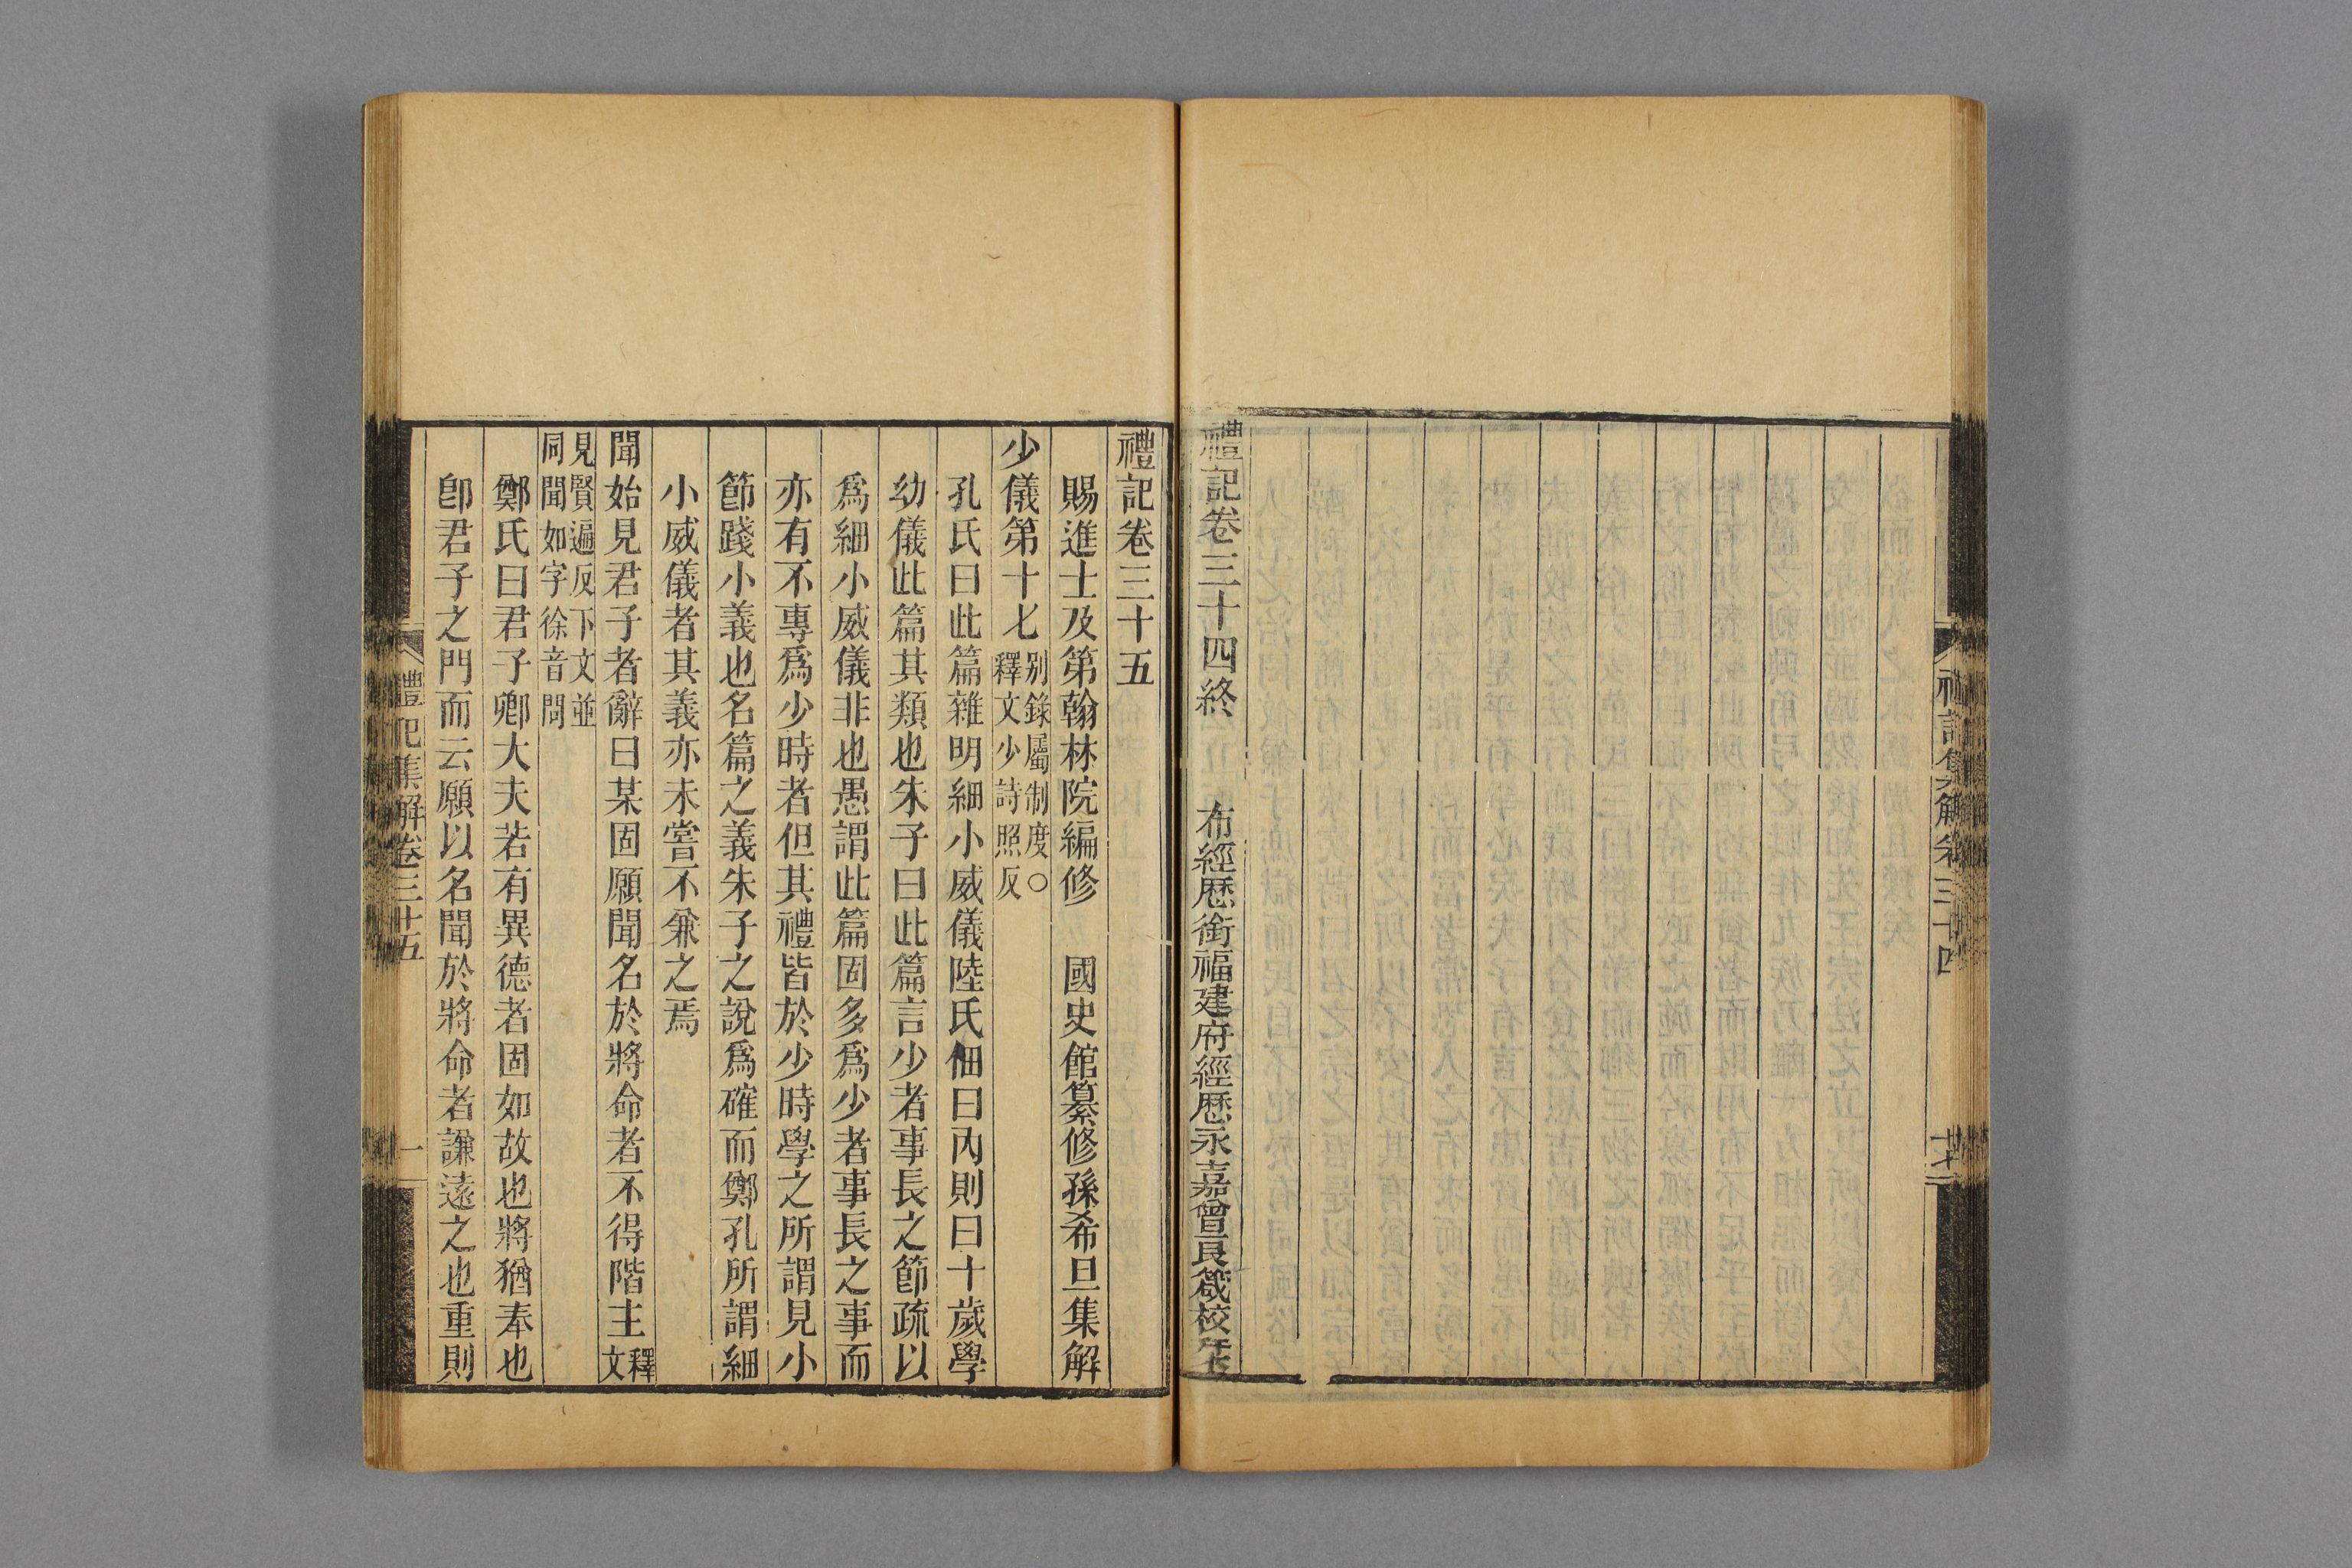 禮記卷三十四終
布經歷銜福建府經歷永嘉曾艮箴校
禮記卷三十五
賜進士及第翰林院編修　國史館纂修孫希旦集解
少儀第十七別錄屬制度○
釋文少詩照反
孔氏曰此篇雜明細小威儀陸氏佃曰內則曰十歲學
幼儀此篇其類也朱子曰此篇言少者事長之節疏以
爲細小威儀非也愚謂此篇固多爲少者事長之事而
亦有不專爲少時者但其禮皆於少時學之所謂見小
節踐小義也名篇之義朱子之說爲確而鄭孔所謂細
小威儀者其義亦未嘗不兼之焉
聞始見君子者辭曰某固願聞名於將命者不得階主釋
文
見賢遍反下文並
同聞如字徐音問
鄭氏曰君子卿大夫若有異德者固如故也將猶奉也
卽君子之門而云願以名聞於將命者謙遠之也重則
禮記集解卷三十五
一